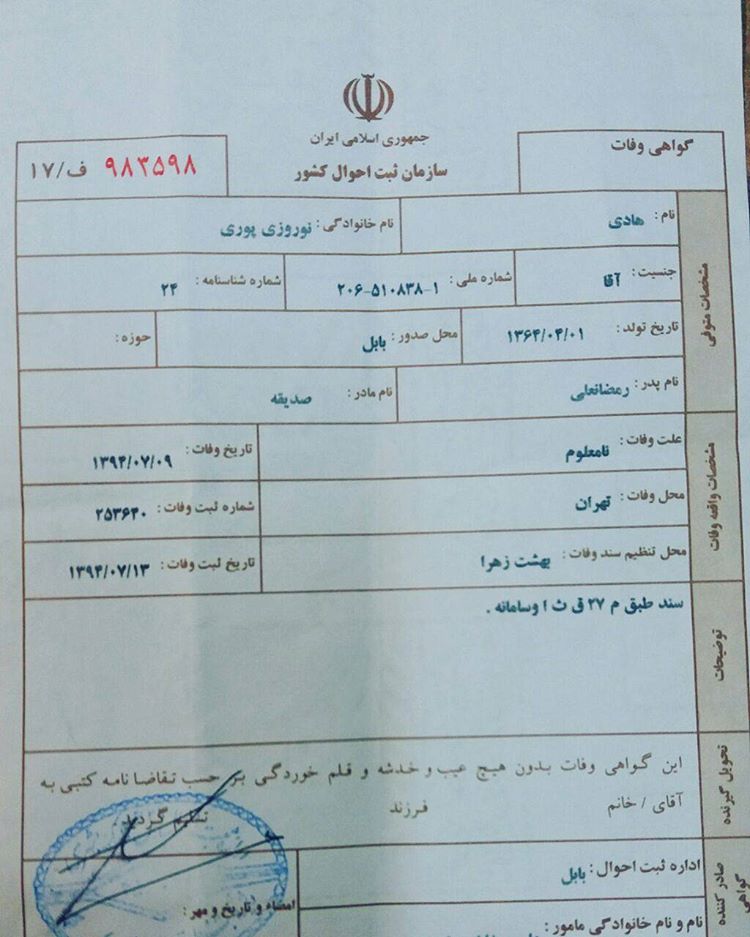 جمهوری اسلامی ایران
سازمان ثبت احوال کشور
گواهی وفات
۹۸۳۵۹۸ ف/۱۷
مشخصات متوفی
نام: هادی
نام خانوادگی: نوروزی پوری
جنسیت: آقا
شماره ملی: ۲۰۶-۵۱۰۸۳۸-۱
شماره شناسنامه: ۲۴
تاریخ تولد: ۱۳۶۴/۰۴/۰۱
محل صدور: بابل
حوزه:
نام پدر: رمضانعلی
نام مادر: صدیقه
مشخصات واقعه وفات
علت وفات: نامعلوم
تاریخ وفات: ۱۳۹۴/۰۷/۰۹
محل وفات: تهران
شماره ثبت وفات: ۲۵۳۶۴۰
محل تنظیم سند وفات: بهشت زهرا
تاریخ ثبت وفات: ۱۳۹۴/۰۷/۱۳
توضیحات
سند طبق م ۲۷ ق ث ا وسامانه .
تحویل گیرنده
این گواهی وفات بدون هیچ عیب و خدشه و قلم خوردگی بر حسب تقاضا نامه کتبی به
آقای / خانم فرزند
تسلیم گردید.
صادر کننده گواهی
اداره ثبت احوال: بابل
امضاء و تاریخ و مهر:
نام و نام خانوادگی مامور: